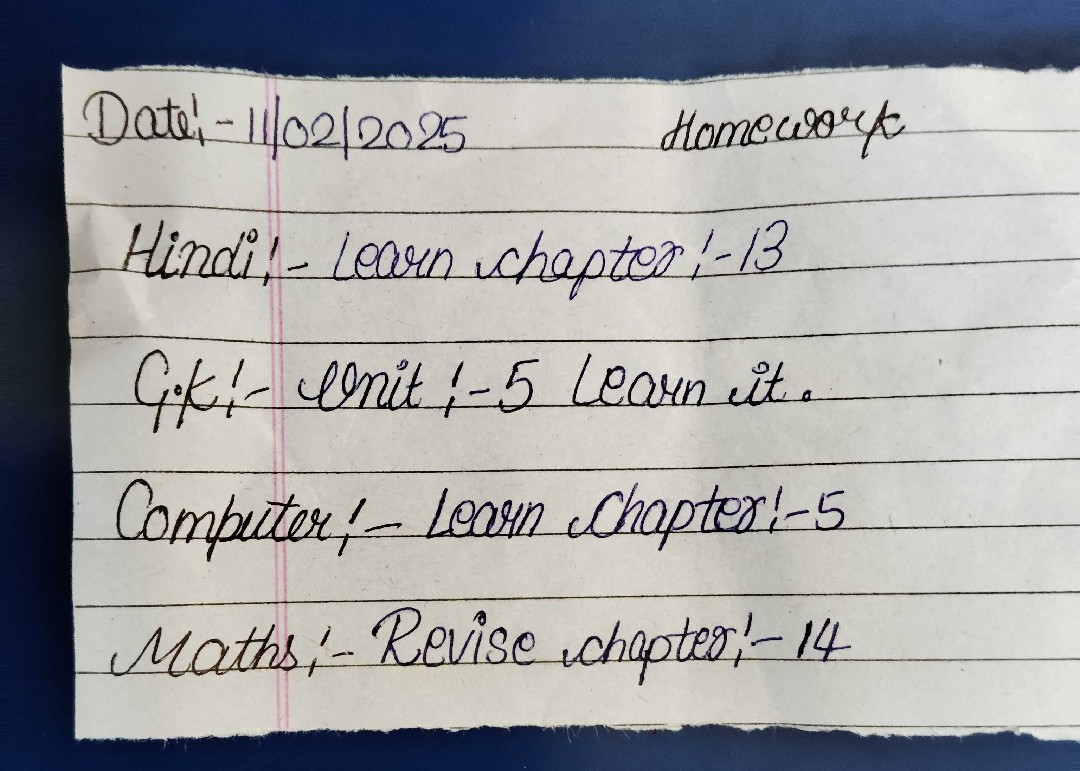 Date:- 11/02/2025 Homework
Hindi:- Learn chapter:-13
G.K:- Unit:-5 Learn it.
Computer:- Learn Chapter:-5
Maths:- Revise chapter:-14